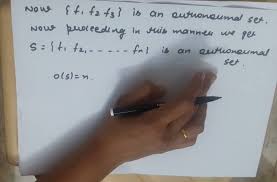 Now {f₁ f₂ f₃} is an orthonormal set.
Now proceeding in this manner we get
S = {f₁ f₂, ------ fn} is an orthonormal
set.
O(S) = n.